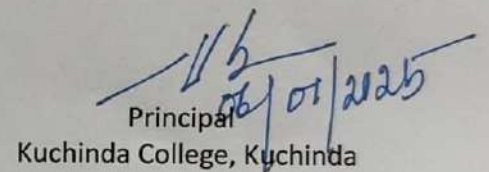 06/01/2025
Principal
Kuchinda College, Kuchinda